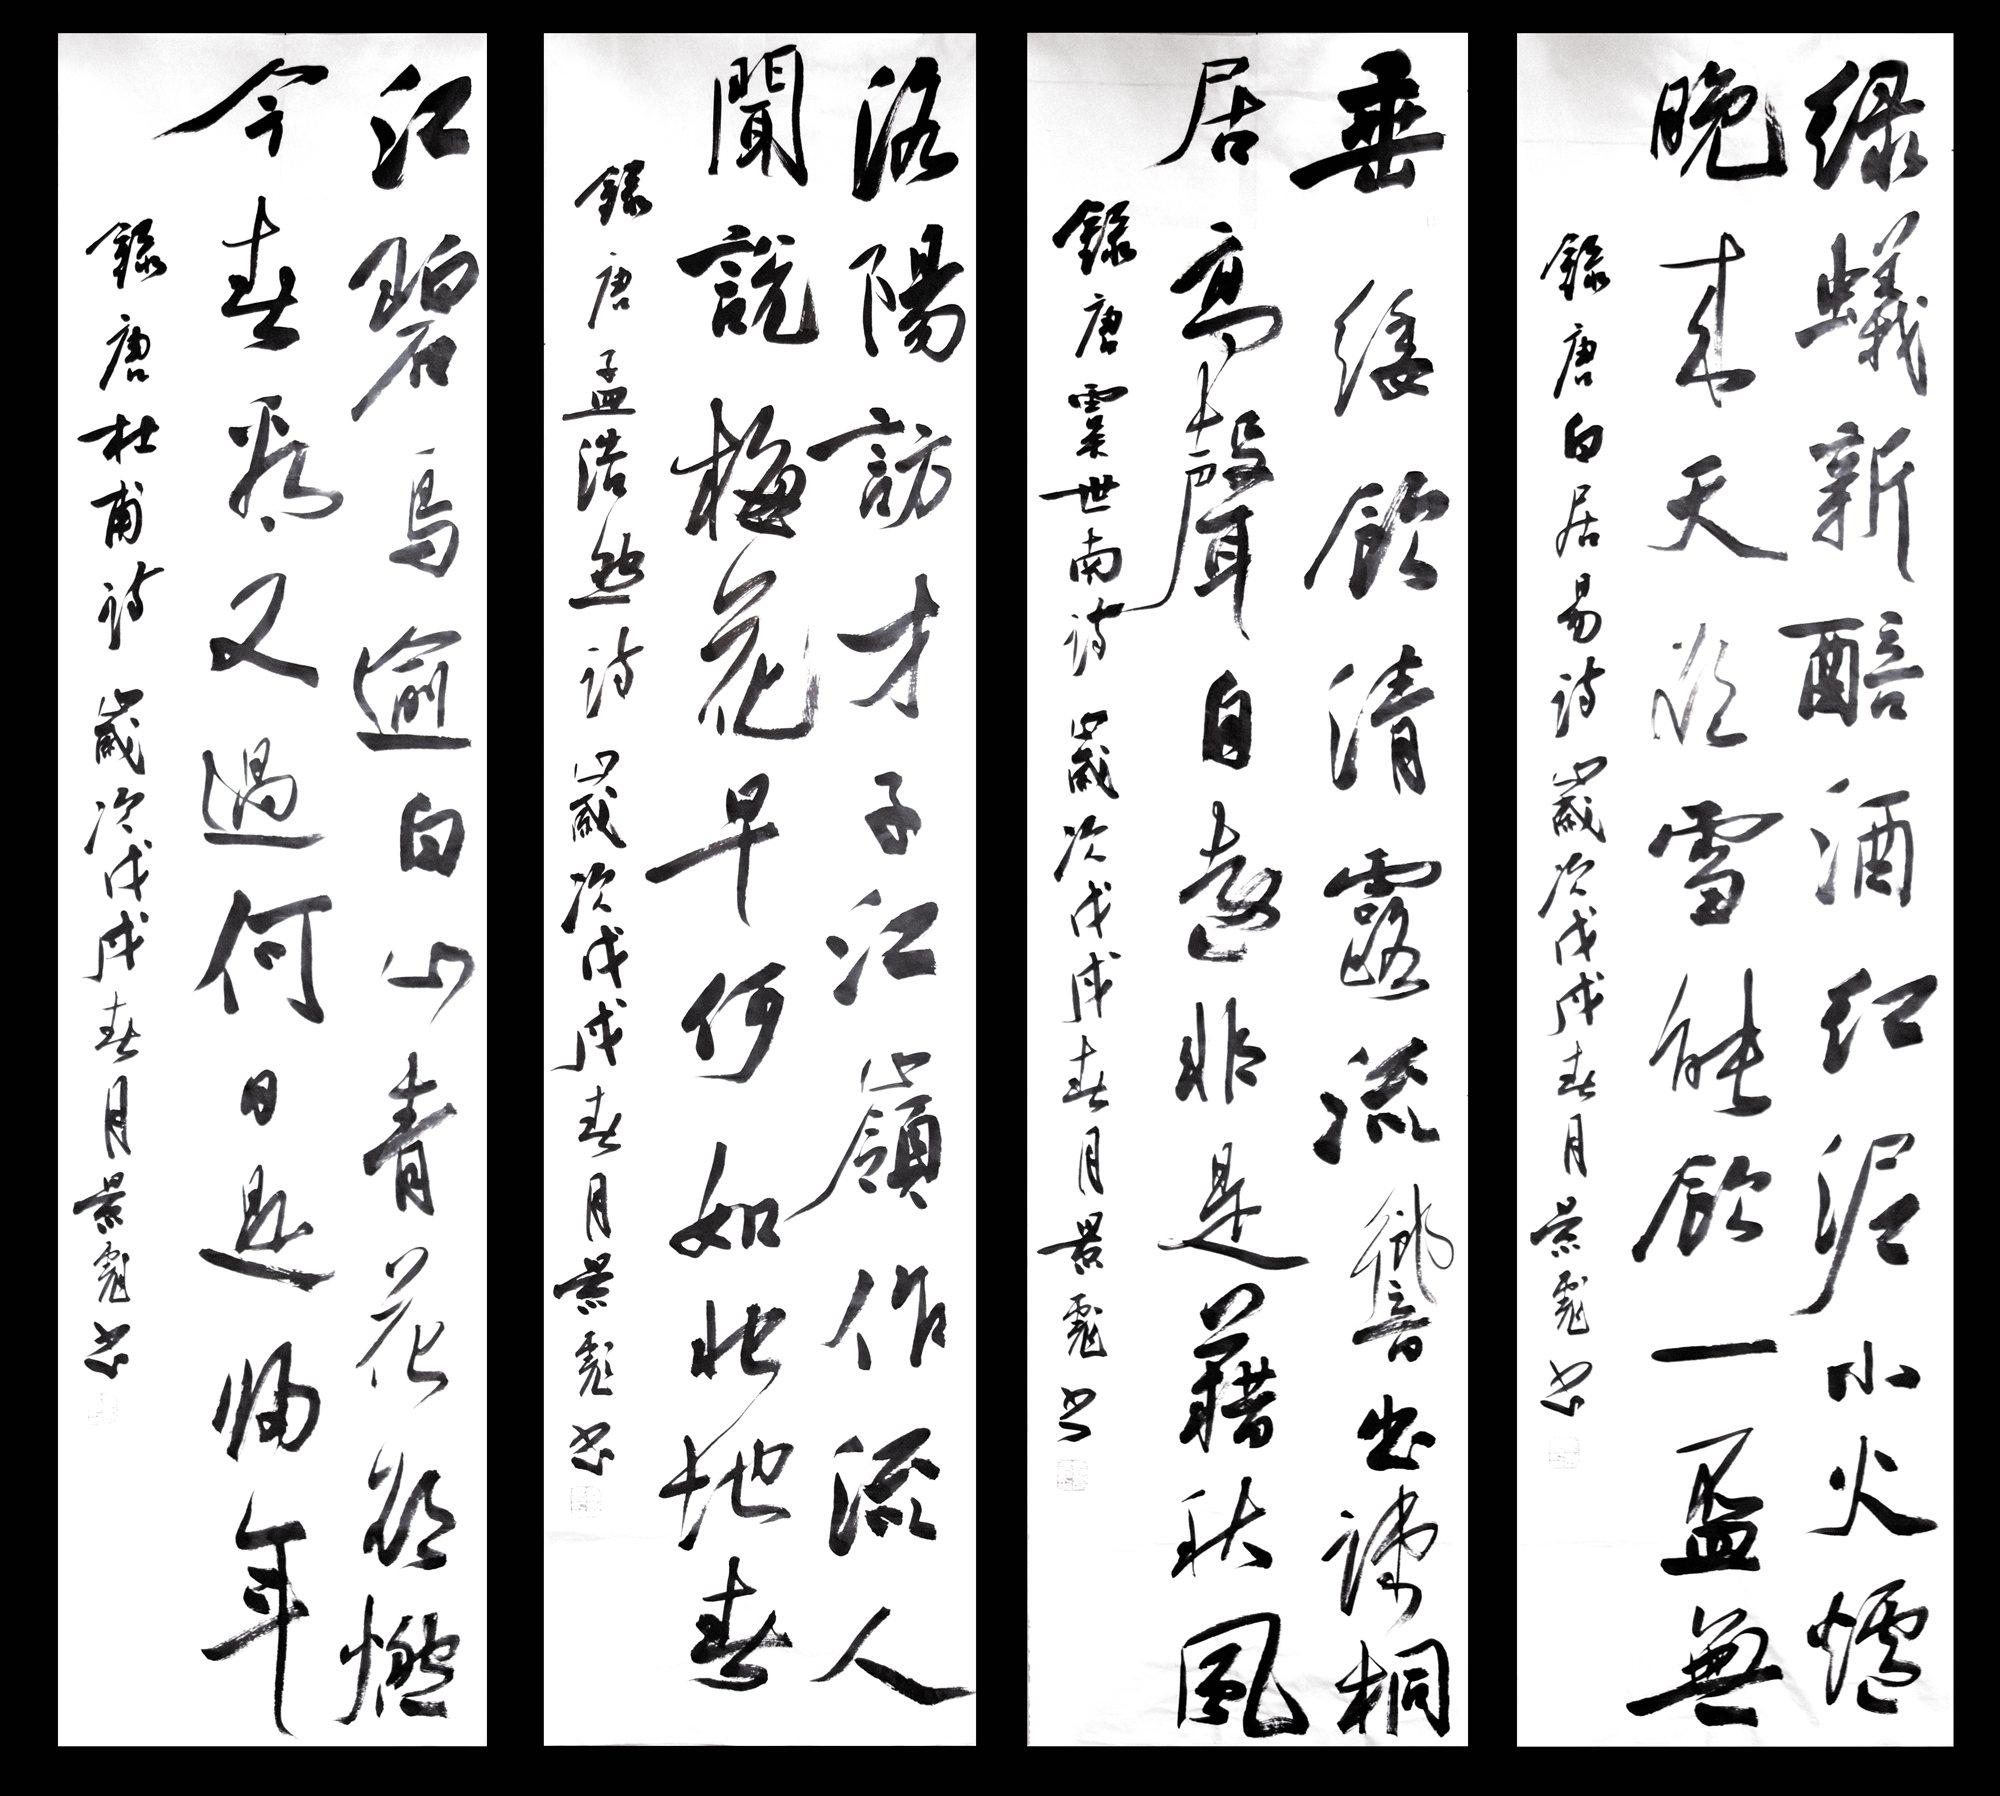 綠蟻新醅酒紅泥小火爐
晚來天欲雪能飲一盃無
錄唐白居易詩 歲次戊戌春月景彪書
垂緌飲清露流響出疎桐
居高聲自遠非是藉秋風
錄唐虞世南詩 歲次戊戌春月景彪書
洛陽訪才子江嶺作流人
聞說梅花早何如此地春
錄唐孟浩然詩 歲次戊戌春月景彪書
江碧鳥逾白山青花欲燃
今春看又過何日是歸年
錄唐杜甫詩 歲次戊戌春月景彪書